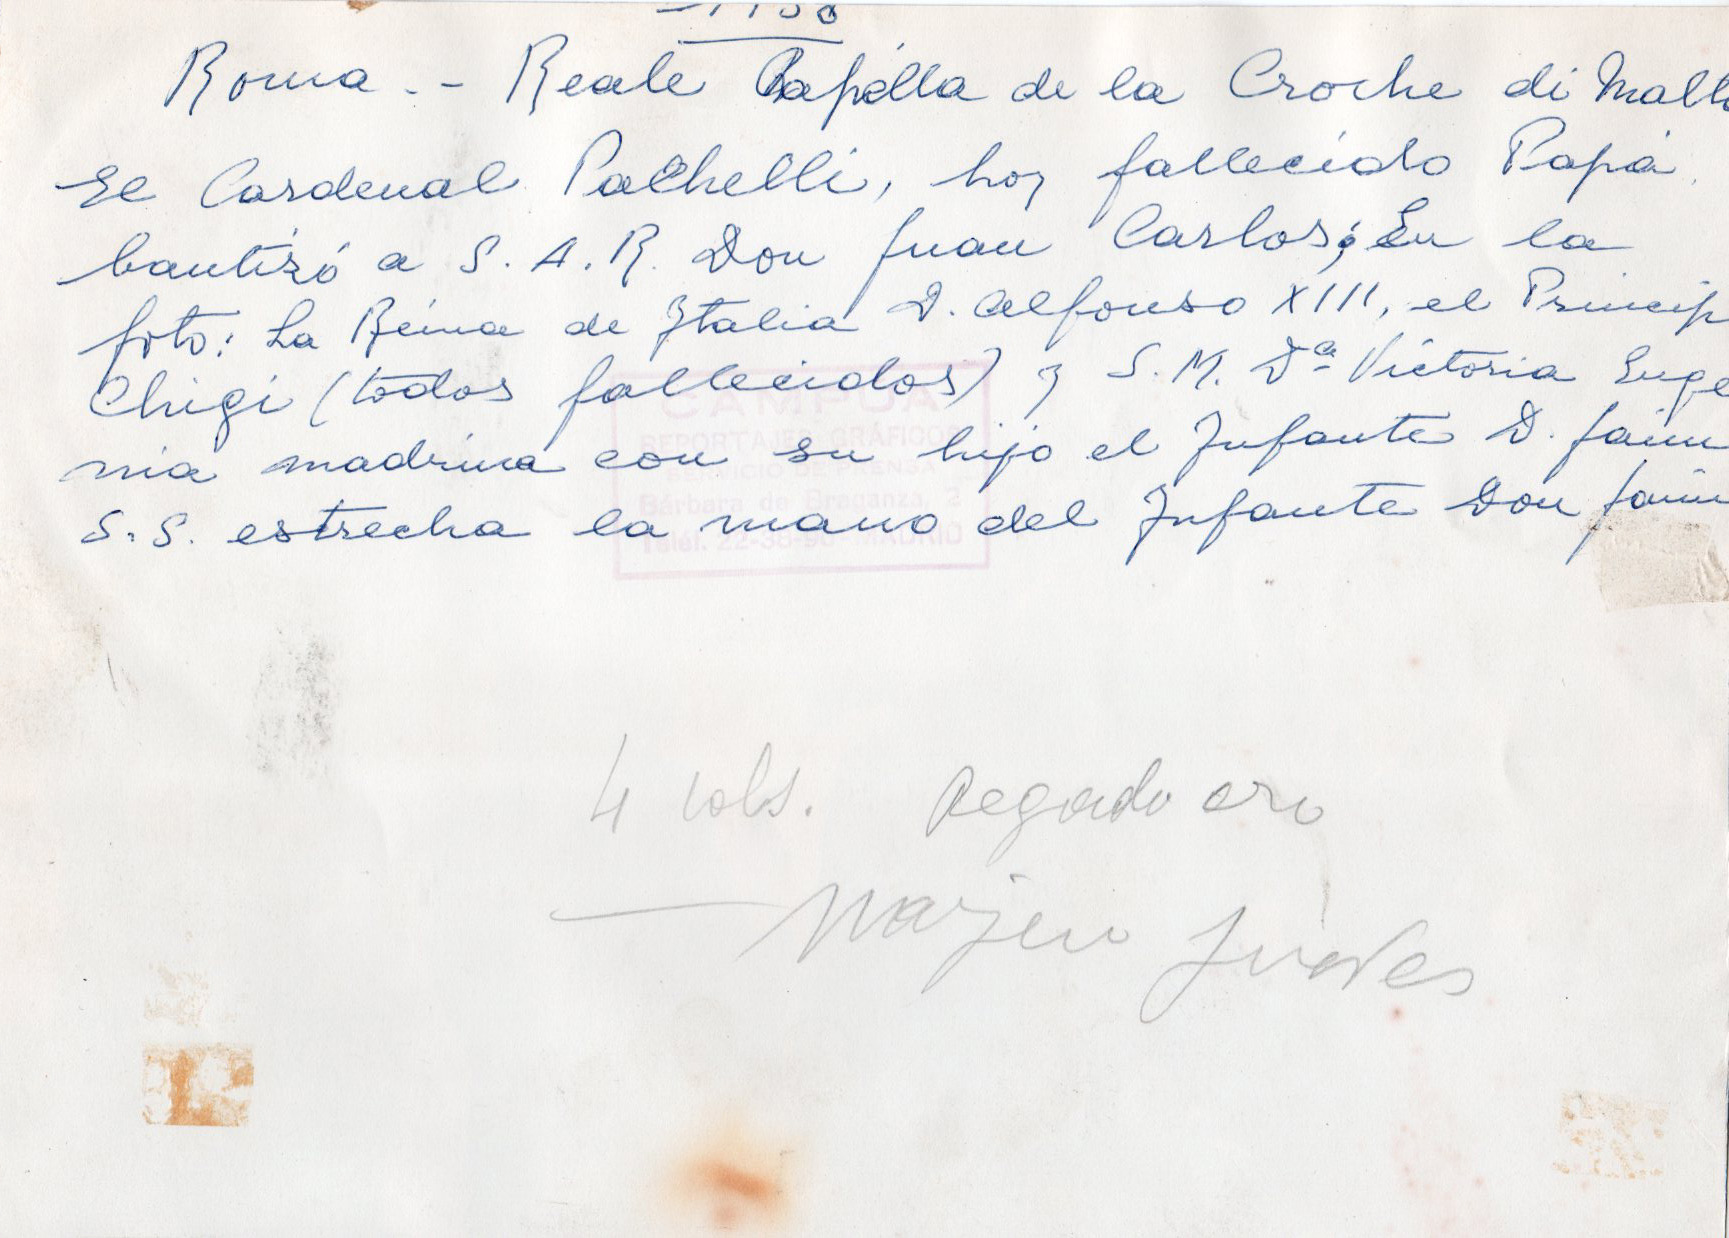 1938
Roma. - Reale Capella de la Croche di Malt
El Cardenal Pachelli, hoy fallecido Papa,
bautizó a S. A. R. Don Juan Carlos; En la
foto: La Reina de Italia D. Alfonso XIII, el Princip
Chigi (todos fallecidos) y S. M. Dª Victoria Euge
nia madrina con su hijo el Infante D. Jaim
S. S. estrecha la mano del Infante Don Jaim
CAMPUA
REPORTAJES GRÁFICOS
SERVICIO DE PRENSA
Bárbara de Braganza, 2
Teléf. 22-36-90 - MADRID
4 cols. Pegado